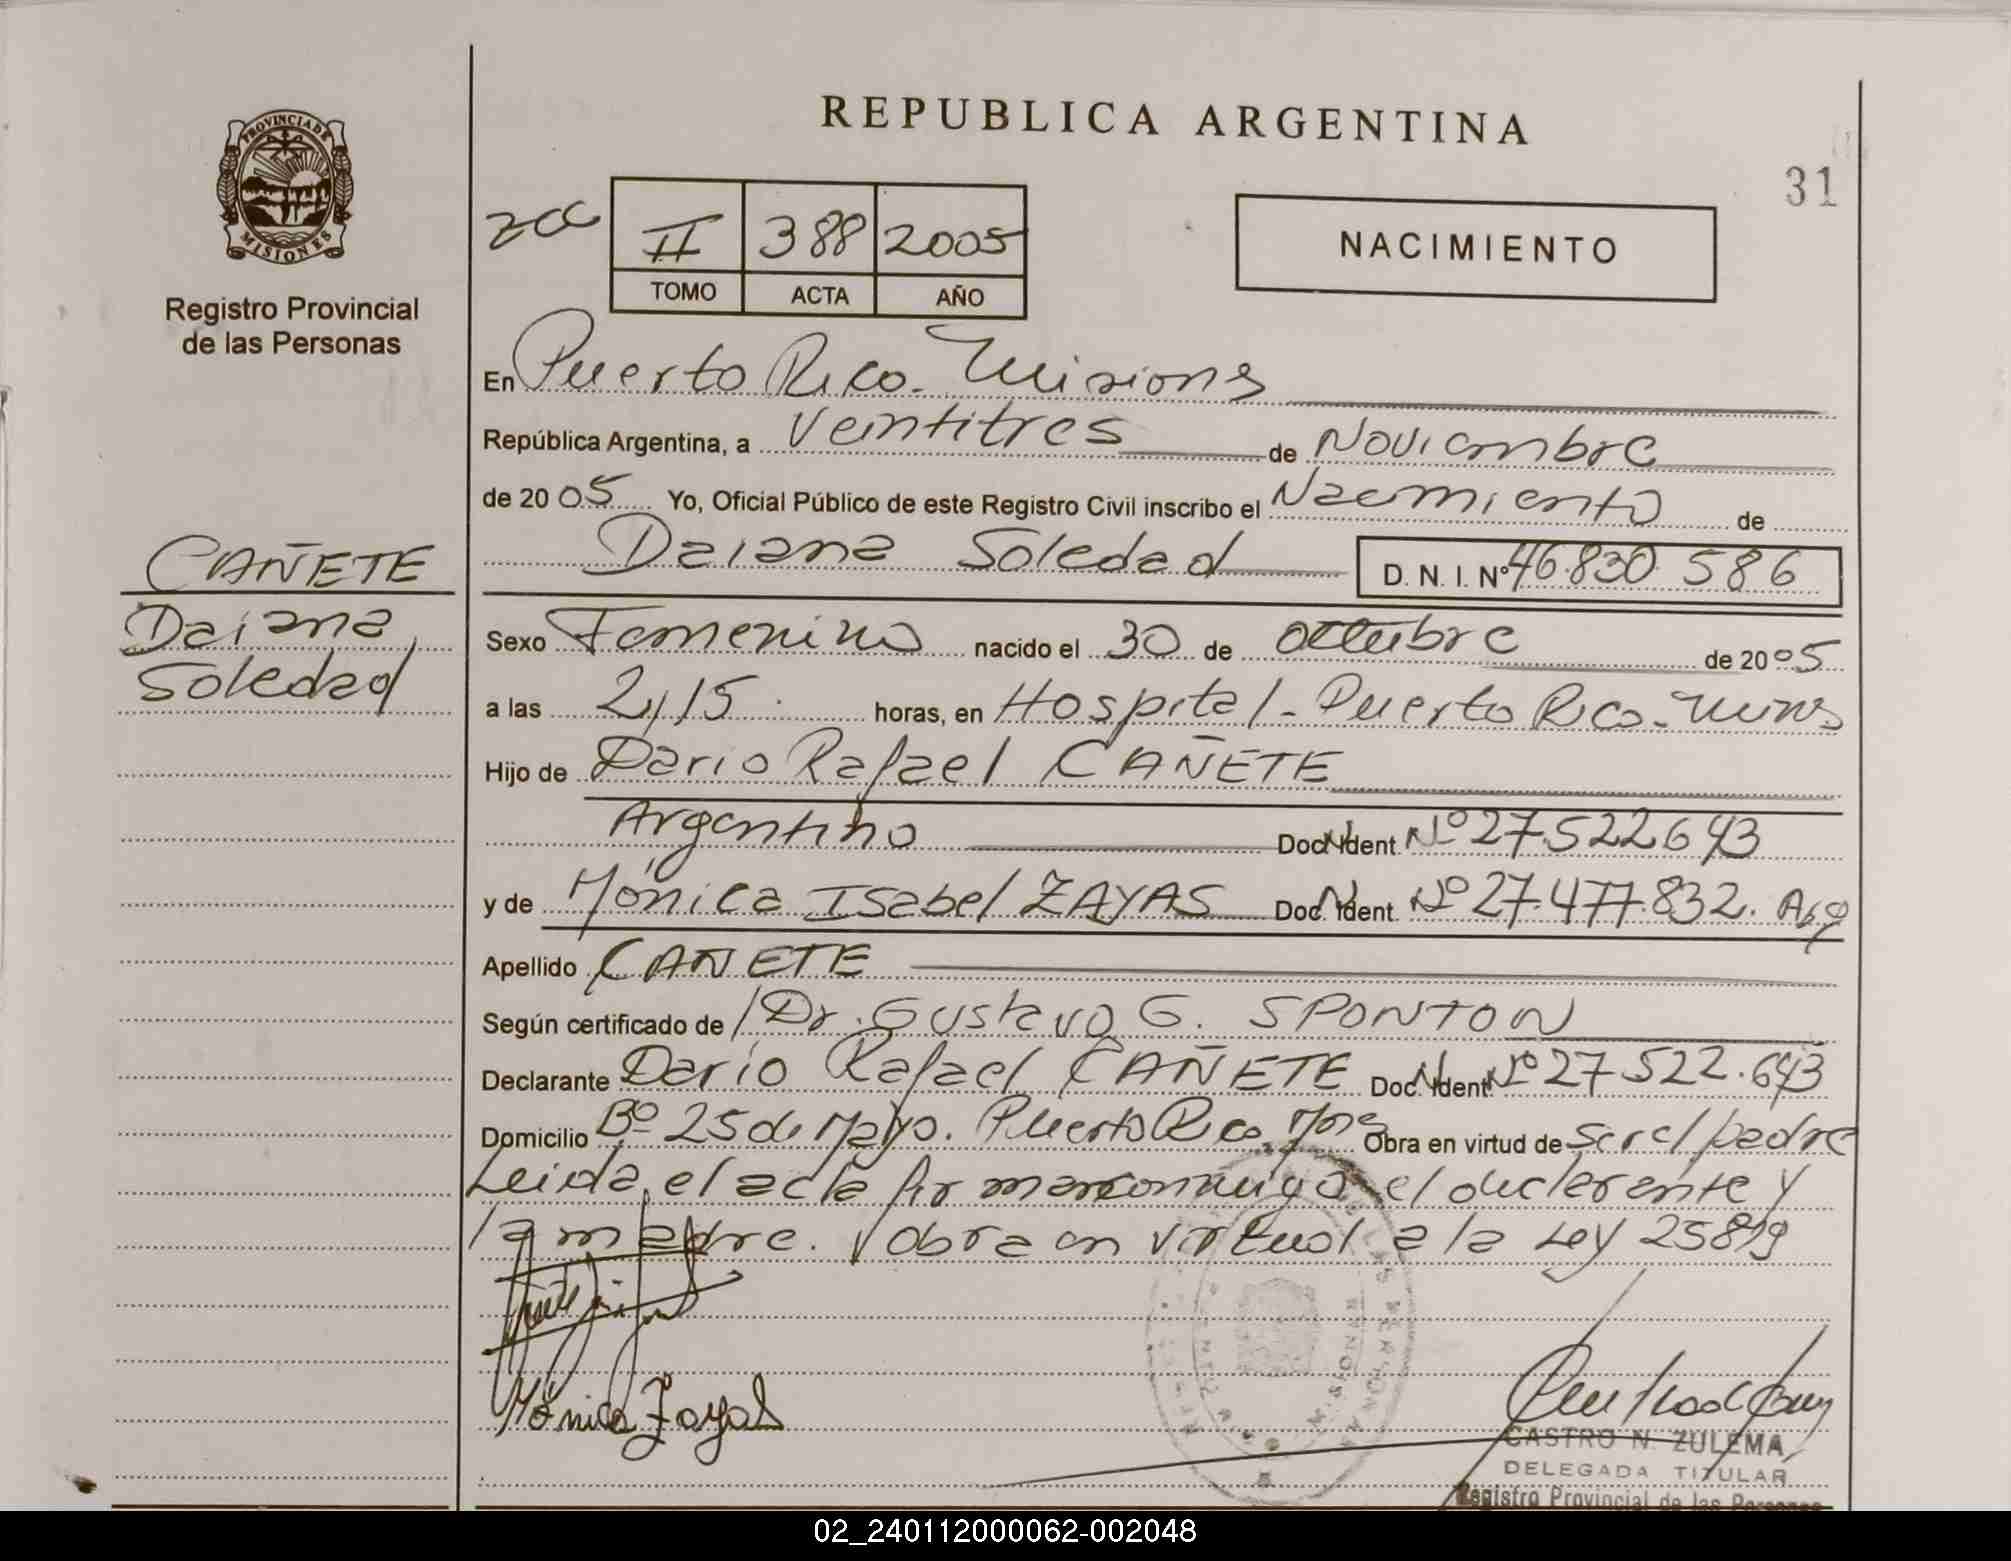 REPUBLICA ARGENTINA
31
PROVINCIA DE
MISIONES
Registro Provincial
de las Personas
II 388 2005
TOMO ACTA AÑO
NACIMIENTO
En Puerto Rico - Misiones
República Argentina, a Veintitres de Noviembre
de 2005 Yo, Oficial Público de este Registro Civil inscribo el Nacimiento de
Daiana Soledad D. N. I. Nº 46.830.586
CAÑETE
Daiana
Soledad
Sexo Femenino nacido el 30 de octubre de 2005
a las 2,15 horas, en Hospital - Puerto Rico - Mnes
Hijo de Dario Rafael CAÑETE
Argentino Doc. Ident. Nº 27.522.643
y de Mónica Isabel ZAYAS Doc. Ident. Nº 27.477.832. Arg
Apellido CAÑETE
Según certificado de Dr. Gustavo G. SPONTON
Declarante Dario Rafael CAÑETE Doc. Ident. Nº 27.522.643
Domicilio Bº 25 de Mayo. Puerto Rico Mnes Obra en virtud de ser el padre
Leida el acta firman conmigo el declarante y
la madre. obra en virtud a la Ley 25819
Mónica Zayas
CASTRO N. ZULEMA
DELEGADA TITULAR
Registro Provincial de las Personas
02_240112000062-002048